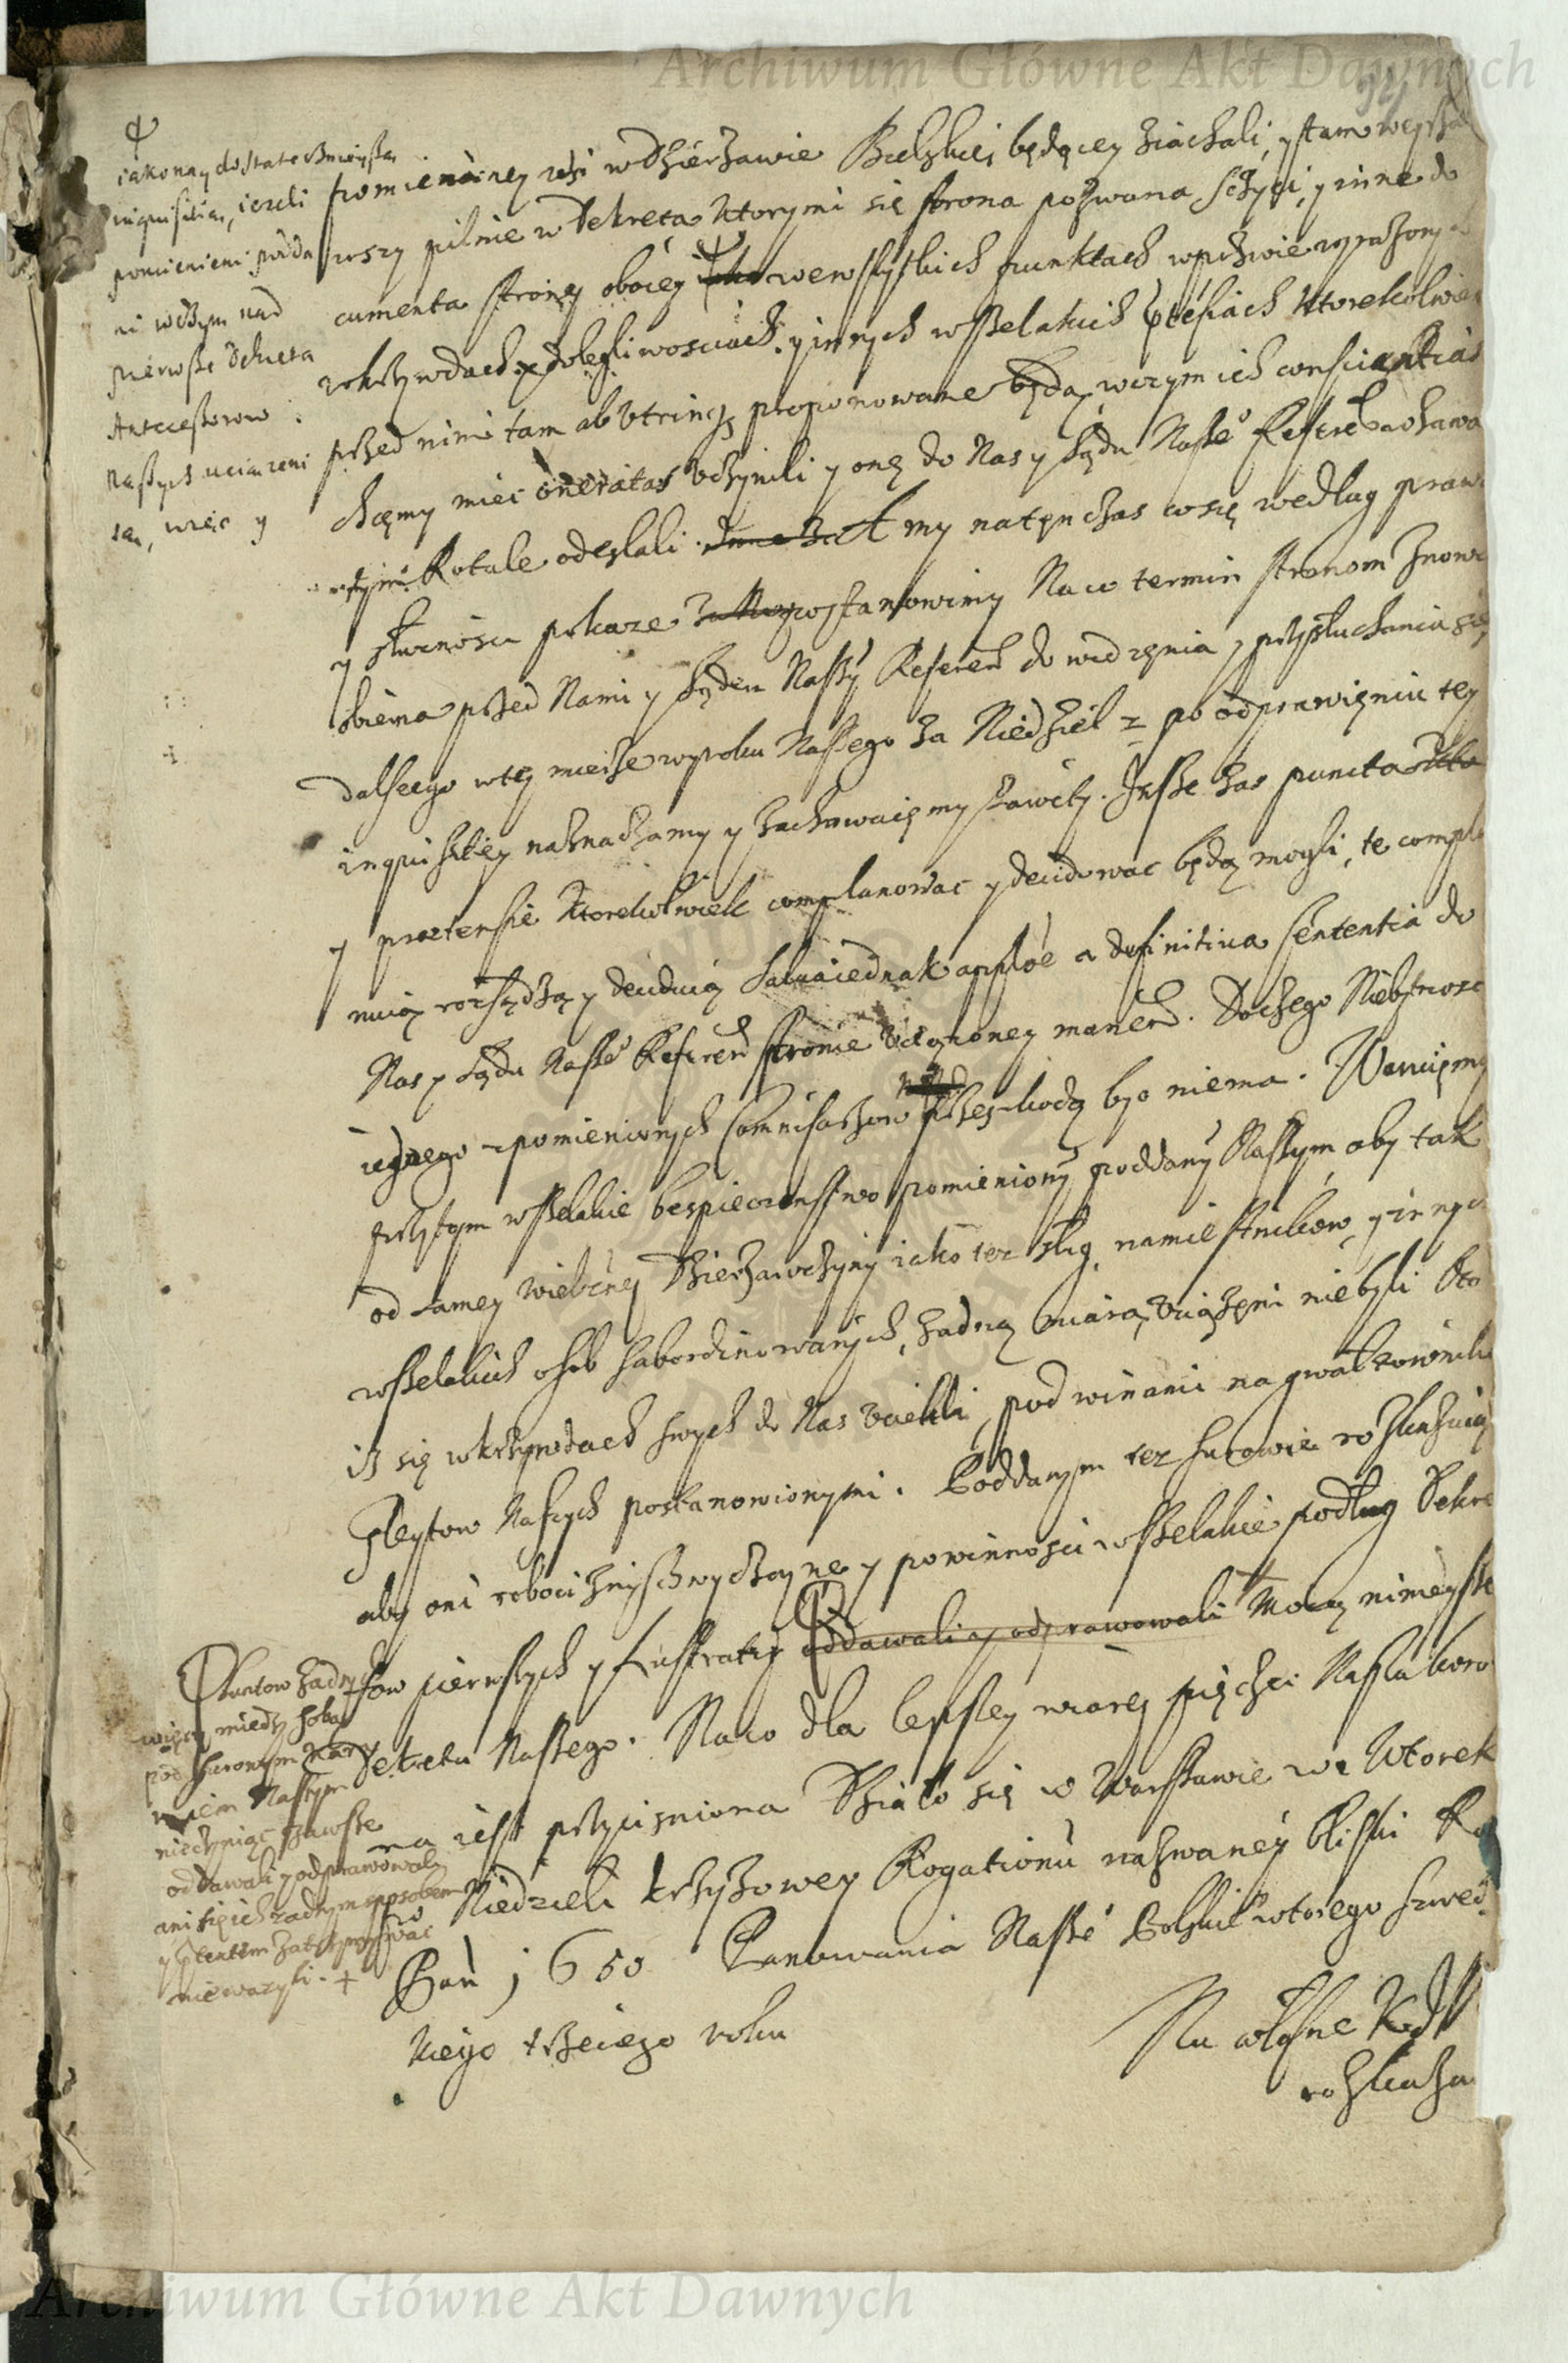 Archiwum Główne Akt Dawnych
iako naydostatecznieyszą
inquisitią, iezeli
pomienieni podda
ni w czym nad
pierwsze dekreta
Antecessorow
naszych uciązeni
są, więc y
pomienioney wsi w Dzierzawie Bielskiey będącey ziachali, y tam weyrza
wszy pilnie w Dekreta ktorymi się strona pozwana szczyci, y inne do
cumenta strony oboiey we wszytkich punktach w pozwie wyrazonych
w krzywdach y dolegliwosciach y innych wszelakich ptesiach ktorekolwiek
przed nimi tam ab utrinq proponowane będą, w czym ich conscientias
chcemy miec oneratas uczynili y onę do Nas y Sądu Nasze Referen
Rotule odesłali. A my natenczas co się według prawa
y słusznosci pokaze postanowimy Na co termin stronom znowu
obiema przed Nami y Sądem Naszy Referen do widzenia y przysłuchania się
dalszego w tey mierze wyroku Naszego za Niedziel 2 po odprawieniu tey
inquisitiey naznaczamy y zachowuięmy zawity. Insze zas puncta
y praetensie ktorekolwiek complanowac y decidowac będą mogli, te compla
nuią rozsądzą y deciduią salua iednak appłoe a definitiua sententia do
Nas y Sądu Nasze Referen stronie uciązoney manen. Do czego Niebytnosc
iednego z pomienionych Comissarzow przeszkodą byc niema. Waruięmy
przytym wszelakie bespieczenstwo pomieniony poddany Naszym, aby tak
od samey wielbney Dzierzawczyny iako tez sług, namiestnikow, y innych
wszelakich osob subordinowanych, zadną miarą uciązeni niebyli Oto
iz się w krzywdach swych do Nas uciekli, pod winami na gwałtownikи
Gleytow Naszych postanowionymi. Poddanym tez surowie rozkazuią
aby oni roboci zny zwyczayne y powinnosci wszelakie podług Dekre
tow pierwszych y Lustratiy oddawali y odprawowali Mocą ninieysze
Dekretu Naszego. Na co dla lepszey wiary pięczęc Nasza koro
na iest przycisniona Działo się w Warszawie we Wtorek
Niedzieli krzyzowey Rogationu nazwaney bliski Ro
Pan 1650 Panowania Nasze Polskie wtorego szwedz
kiego trzeciego roku
Buntow zadnych
więcy miedzy sobą
pod surowym kara
niem Naszym
nieczyniąc zawsze
oddawali y odprawowali
ani się ich zadnym sposobem
niewazyli. +
Na własne KJM
rozkaza
Archiwum Główne Akt Dawnych